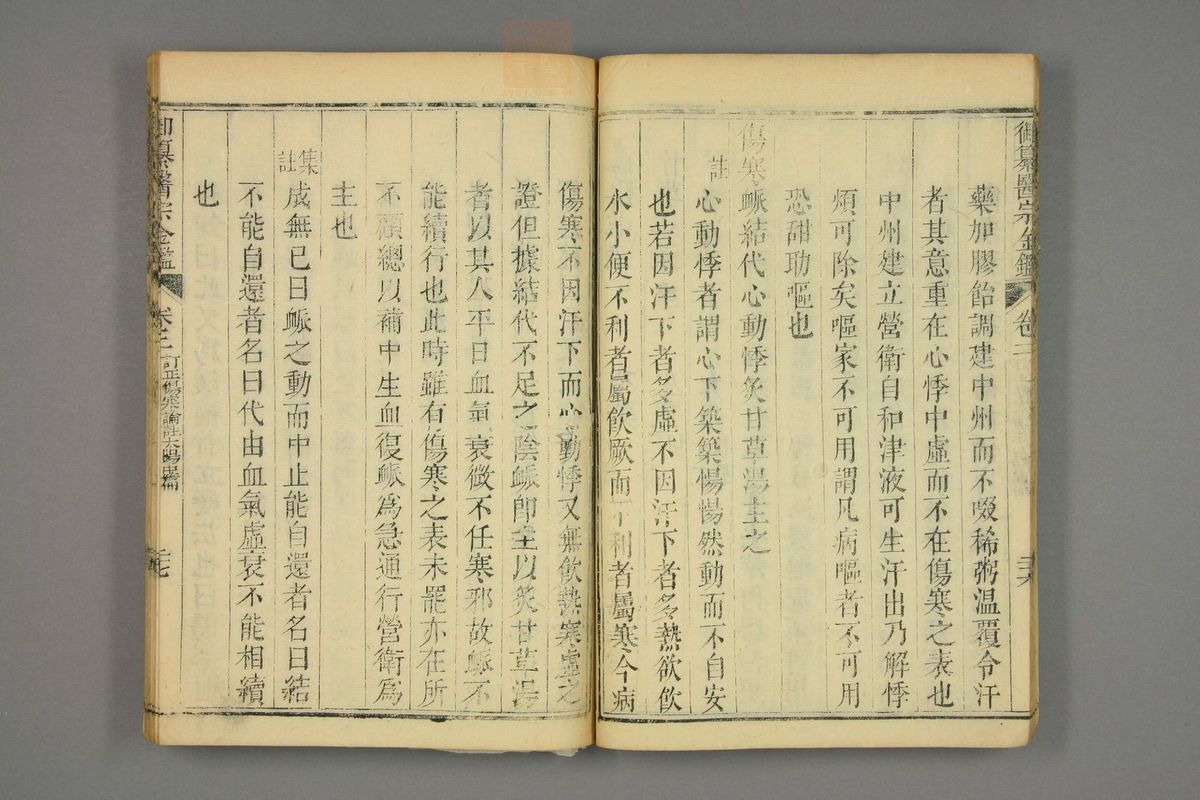 御纂醫宗金鑑 卷二 三六
藥加膠飴調建中州而不啜稀粥溫覆令汗
者其意重在心悸中虛而不在傷寒之表也
中州建立營衛自和津液可生汗出乃解悸
煩可除矣嘔家不可用謂凡病嘔者不可用
恐甜助嘔也
傷寒脈結代心動悸炙甘草湯主之
註心動悸者謂心下築築惕惕然動而不自安
也若因汗下者多虛不因汗下者多熱欲飲
水小便不利者屬飲厥而下利者屬寒今病
傷寒不因汗下而心動悸又無飲熱寒虛之
證但據結代不足之陰脈即主以炙甘草湯
者以其人平日血氣衰微不任寒邪故脈不
能續行也此時雖有傷寒之表未罷亦在所
不顧總以補中生血復脈為急通行營衛為
主也
集註成無已曰脈之動而中止能自還者名曰結
不能自還者名曰代由血氣虛衰不能相續
也
御纂醫宗金鑑 卷二 訂正傷寒論註太陽中篇 三七